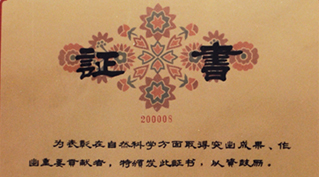 証書
200008
为表彰在自然科学方面取得突出成果、作
出重要贡献者，特颁发此证书，以资鼓励。